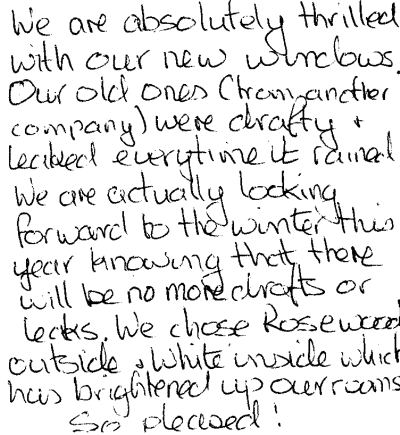 We are absolutely thrilled
with our new windows.
Our old ones (from another
company) were drafty +
leaked everytime it rained
We are actually looking
forward to the winter this
year knowing that there
will be no more drafts or
leaks. We chose Rosewood
outside + White inside which
has brightened up our rooms
So pleased!